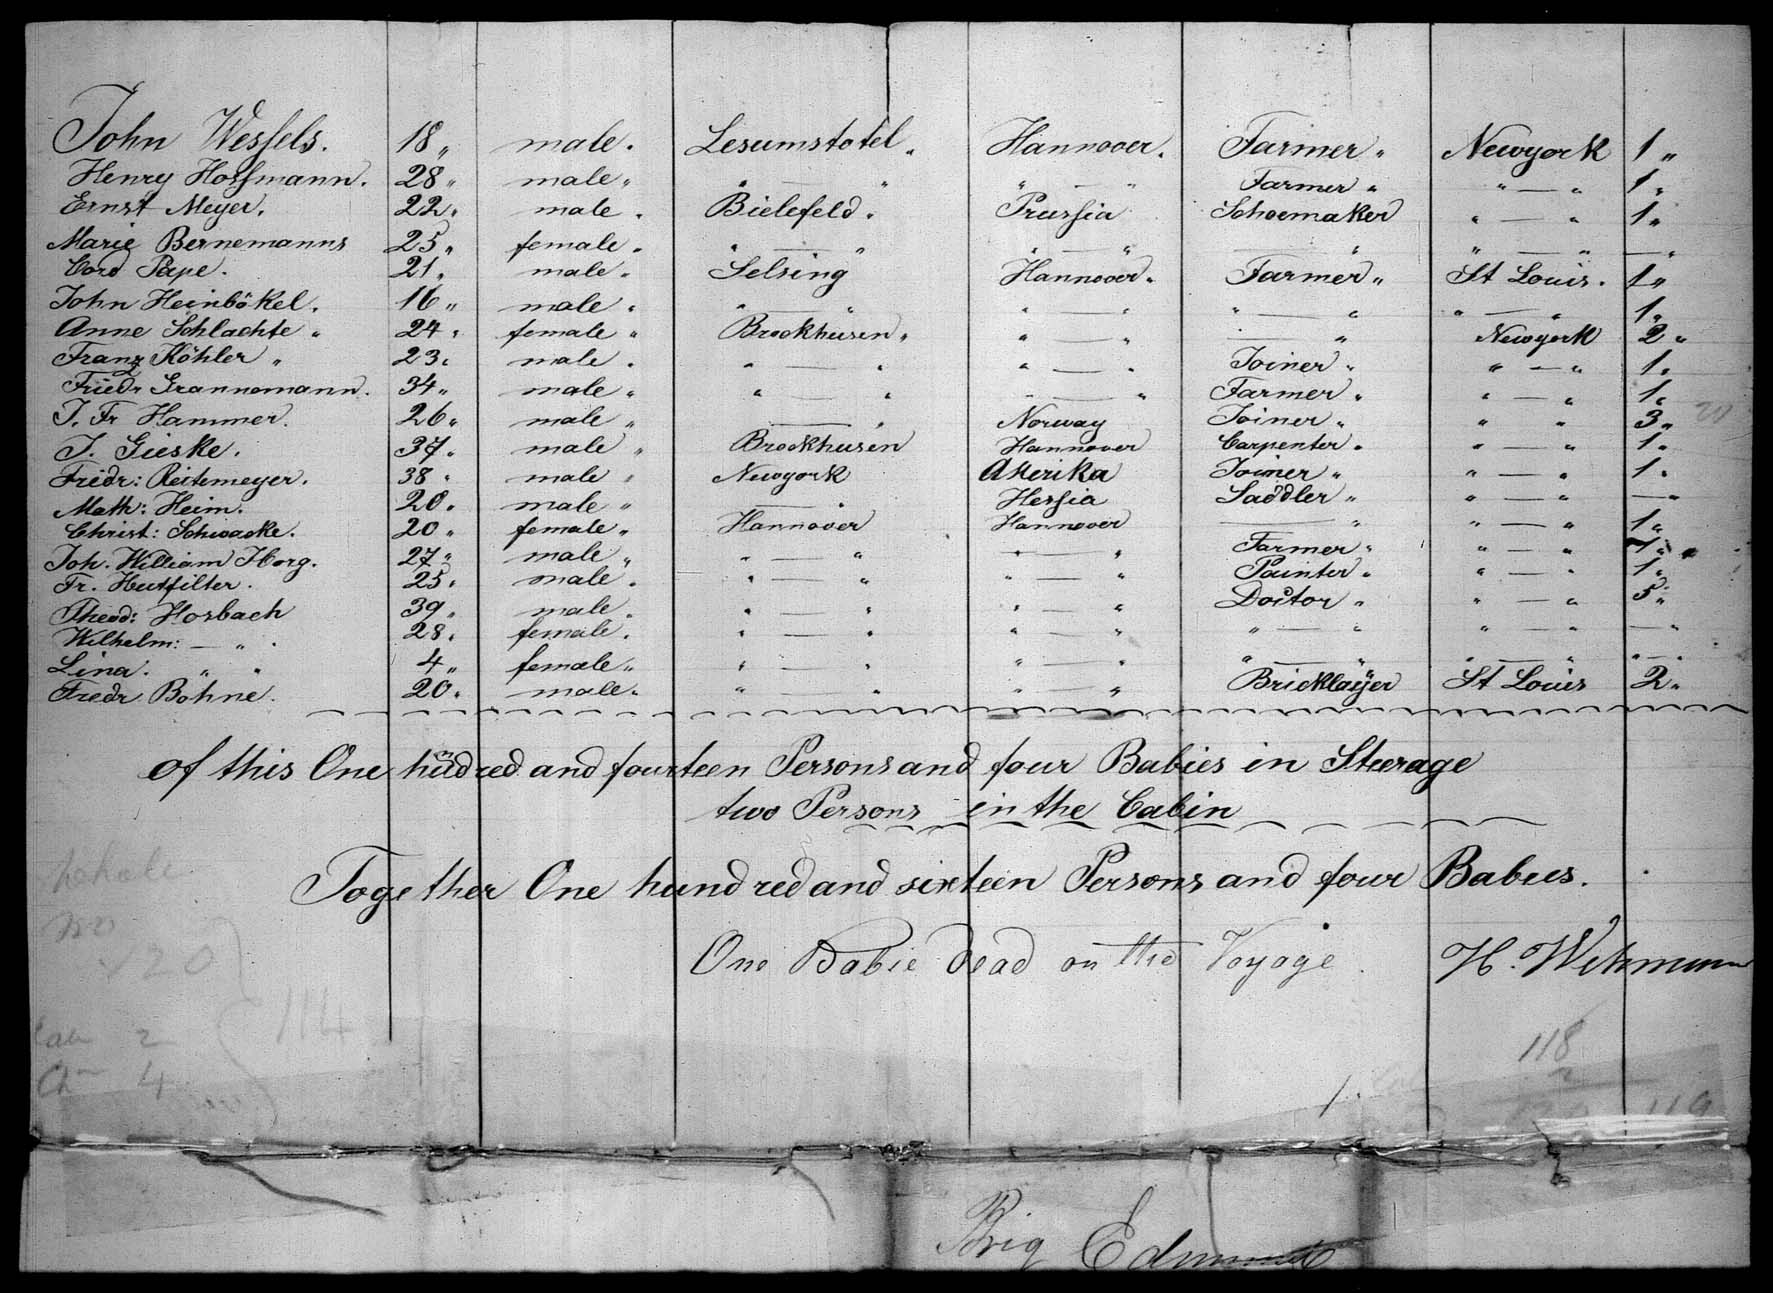 John Wessels. 18 „ male. Lesumstotel „ Hannover. Farmer „ Newyork 1 „
Henry Hoffmann. 28 „ male „ „ — „ „ — „ Farmer „ „ — „ 1 „
Ernst Meyer. 22 „ male „ Bielefeld „ Prussia Schoemaker „ — „ 1 „
Marie Bernemanns 25 „ female „ „ — „ „ — „ — „ „ — „ — „
Cord Pape. 21 „ male „ Selsing Hannover „ Farmer „ St Louis. 1 „
John Heinbökel. 16 „ male „ „ — „ „ — „ „ — „ „ — „ 1 „
Anne Schlachte „ 24 „ female „ Brockhusen „ „ — „ — „ Newyork 2 „
Franz Köhler „ 23 „ male „ „ — „ „ — „ Joiner „ „ — „ 1 „
Friedr Grannemann. 34 „ male „ „ — „ „ — „ Farmer „ „ — „ 1 „
J. Fr Hammer. 26 „ male „ — „ Norway Joiner „ „ „ 3 „ 20
J. Gieske. 37 „ male „ Brockhusen Hannover Carpenter „ „ — „ 1 „
Fridr: Reitemeyer. 38 „ male „ Newyork Amerika Joiner „ „ — „ 1 „
Math: Heim. 20 „ male „ — „ Hessia Saddler „ „ — „ — „
Christ: Schwacke. 20 „ female „ Hannover Hannover — „ „ — „ 1 „
Joh. William Horg. 27 „ male „ „ — „ „ — „ Farmer „ „ — „ 1 „
Fr. Hutfilter. 25 „ male „ „ — „ „ — „ Painter „ „ — „ 1 „
Theod: Horbach 39 „ male „ „ — „ „ — „ Doctor „ „ — „ 5 „
Wilhelm: — „ 28 „ female „ „ — „ „ — „ „ — „ „ — „ — „
Lina. „ „ 4 „ female „ „ — „ „ — „ „ — „ „ — „ „ — „
Fredr Bohne. 20 „ male „ „ — „ „ — „ Bricklayer St Louis 2 „
of this One hundred and fourteen Persons and four Babies in Steerage
two Persons in the Cabin
Together One hundred and sixteen Persons and four Babies.
One Babie dead on the Voyage. H. Wehmann
120
114
2
4
118
2
119
Brig Edmund